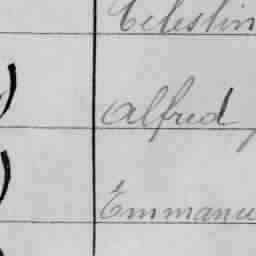 Celestin
Alfred
Emmanue